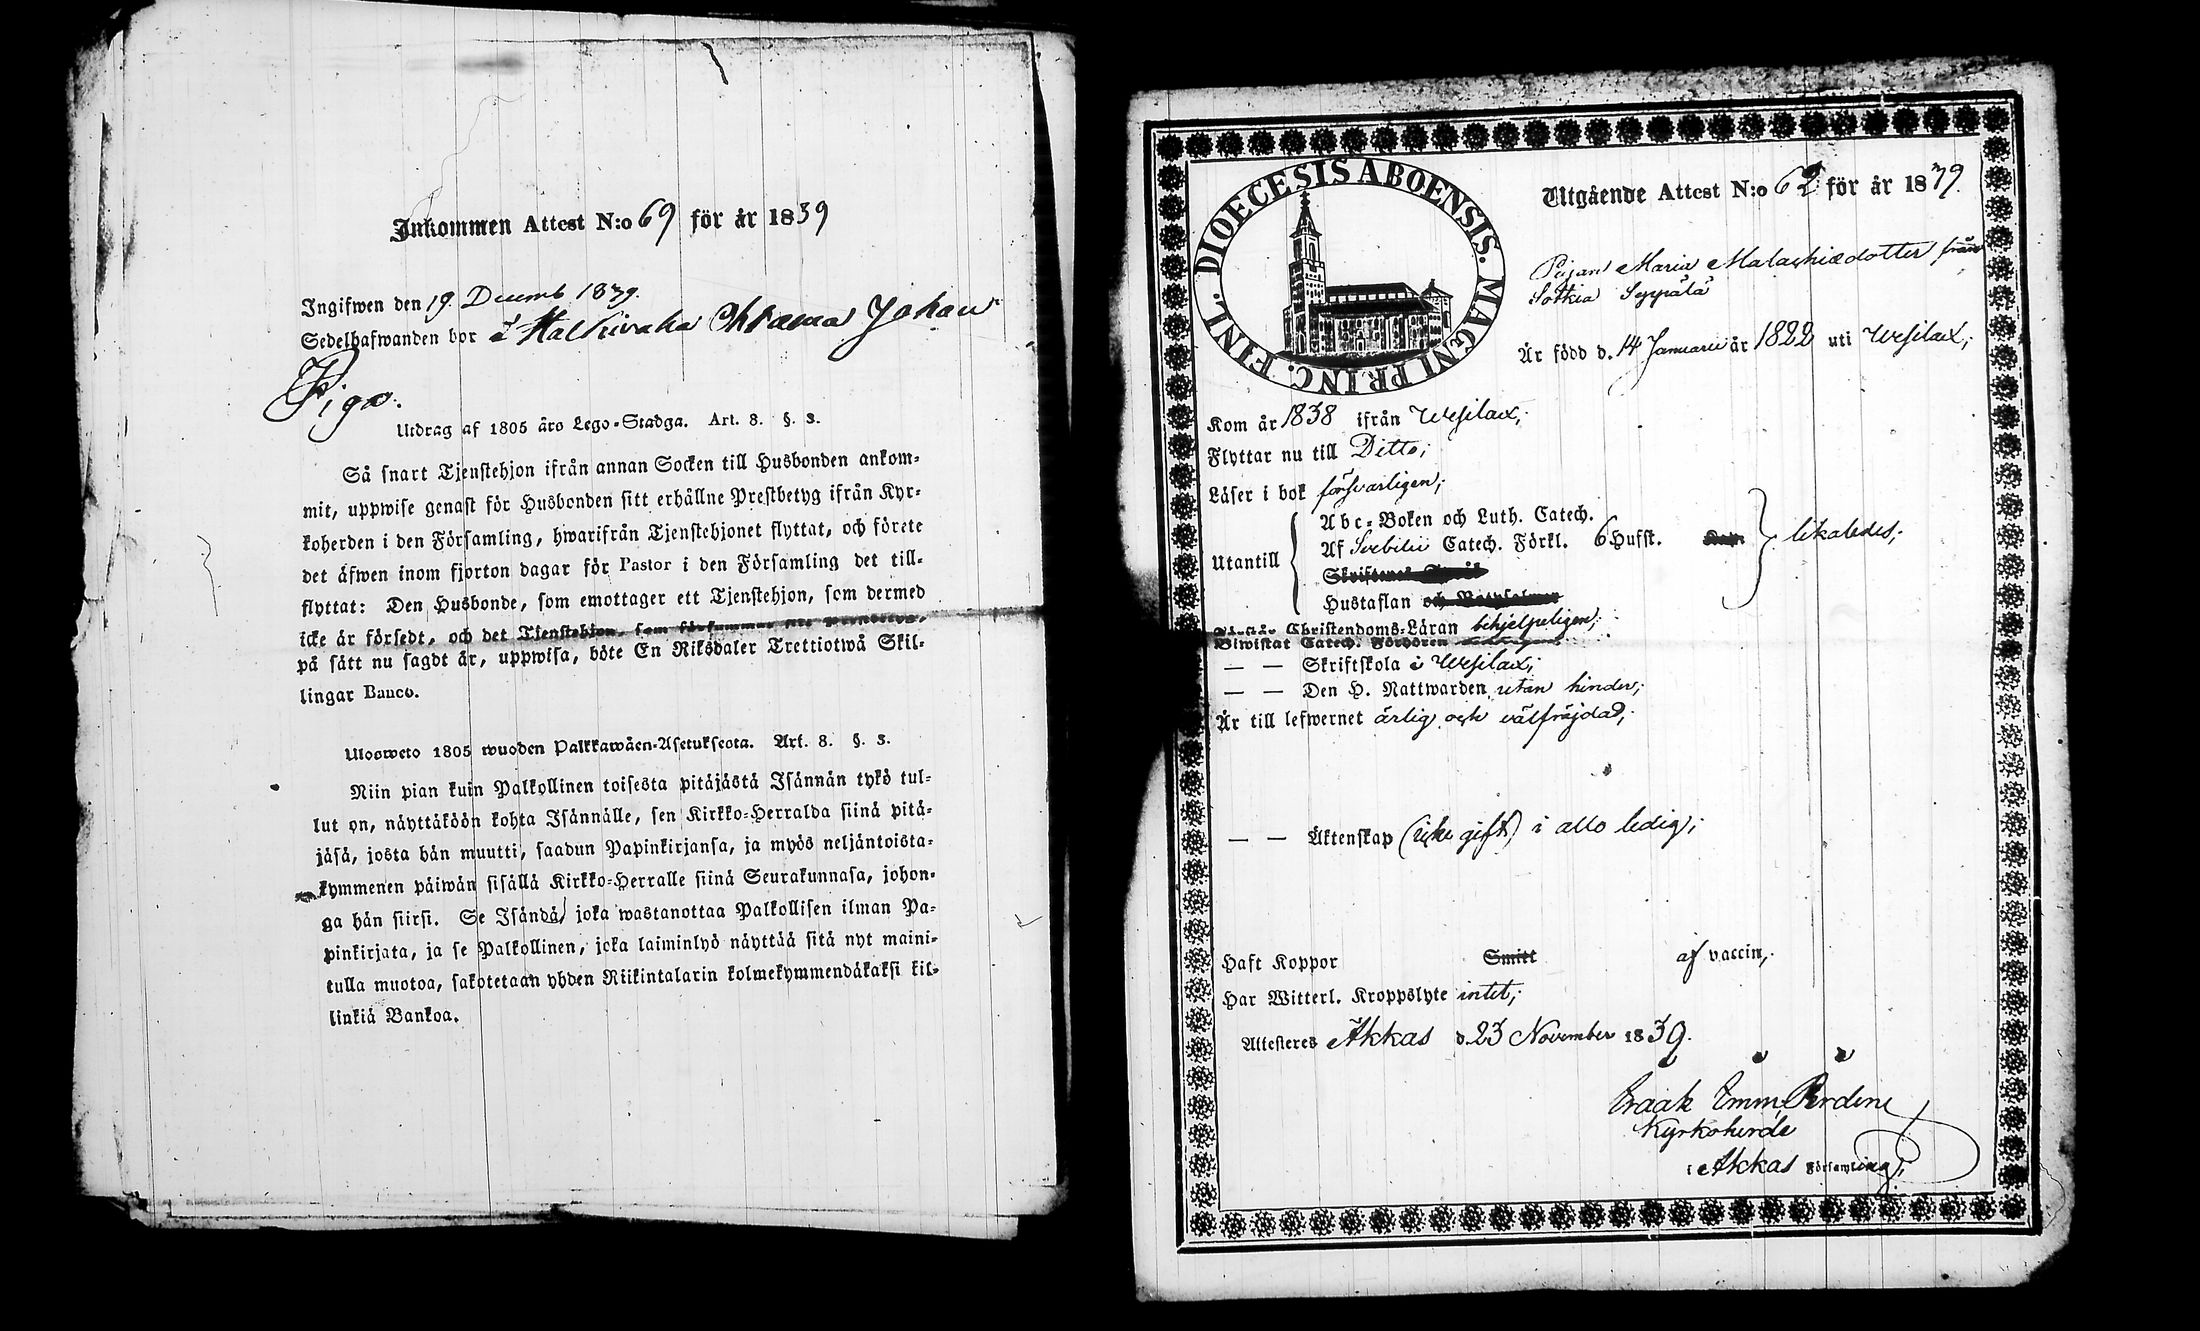 Inkommen Attest N:o 69 för år 1839
Ingifwen den 19 Decemb 1839.
Sedelhafwanden bor i Halkivaha Johan
Piga.
Utdrag af 1805 års Lego-Stadga. Art. 8. §. 3.
Så snart Tjenstehjon ifrån annan Socken till Husbonden ankom-
mit, uppwise genast för Husbonden sitt erhållne Prestbetyg ifrån Kyr-
koherden i den Församling, hwarifrån Tjenstehjonet flyttat, och förete
det äfwen inom fjorton dagar för Pastor i den Församling det till-
flyttat: Den Husbonde, som emottager ett Tjenstehjon, som dermed
icke är försedt, och det Tjenstehjon, som försummar sitt Prestbetyg,
på sätt nu sagdt är, uppwisa, böte En Riksdaler Trettiotwå Skil-
lingar Banco.
Ulosweto 1805 wuoden Palkkawäen-Asetuksesta. Art. 8. §. 3.
Niin pian kuin Palkollinen toisesta pitäjästä Isännän tykö tul-
lut on, näyttäköön kohta Isännälle, sen Kirkko-Herralda siinä pitä-
jäsä, josta hän muutti, saadun Papinkirjansa, ja myös neljäntoista-
kymmenen päiwän sisällä Kirkko-Herralle siinä Seurakunnasa, johon-
ga hän siirsi. Se Isändä, joka wastanottaa Palkollisen ilman Pa-
pinkirjata, ja se Palkollinen, joka laiminlyö näyttää sitä nyt maini-
tulla muotoa, sakotetaan yhden Riikintalarin kolmekymmendäkaksi kil-
linkiä Bankoa.
DIOECESIS ABOENSIS. MAGNI PRINC. FINL.
Utgående Attest N:o 62 för år 1839
Pigan Maria Malachiædotter från
Sotkia Seppälä
Är född d. 14 Januarii år 1822 uti Wesilax;
Kom år 1838 ifrån Wesilax;
Flyttar nu till Ditto;
Läser i bok försvarligen;
Utantill
Abc-Boken och Luth. Catech.
Af Svebilii Catech. Förkl. 6 Hufst.
likaledes;
Skriftenes Språk
Hustaflan och Botpsalmer
Förstår Christendoms-Läran behjelpeligen;
Biwistat Catech. Förhören
— — Skriftskola i Wesilax;
— — Den H. Nattwarden utan hinder;
Är till lefwernet ärlig och välfräjdad;
— — Äktenskap (icke gift) i allo ledig;
Haft Koppor Smitt af vaccin;
Har Witterl. Kroppslyte intet;
Attesteres Akkas d. 23 November 1839.
Isaak Emm. Perden
Kyrkoherde
i Akkas Församling;